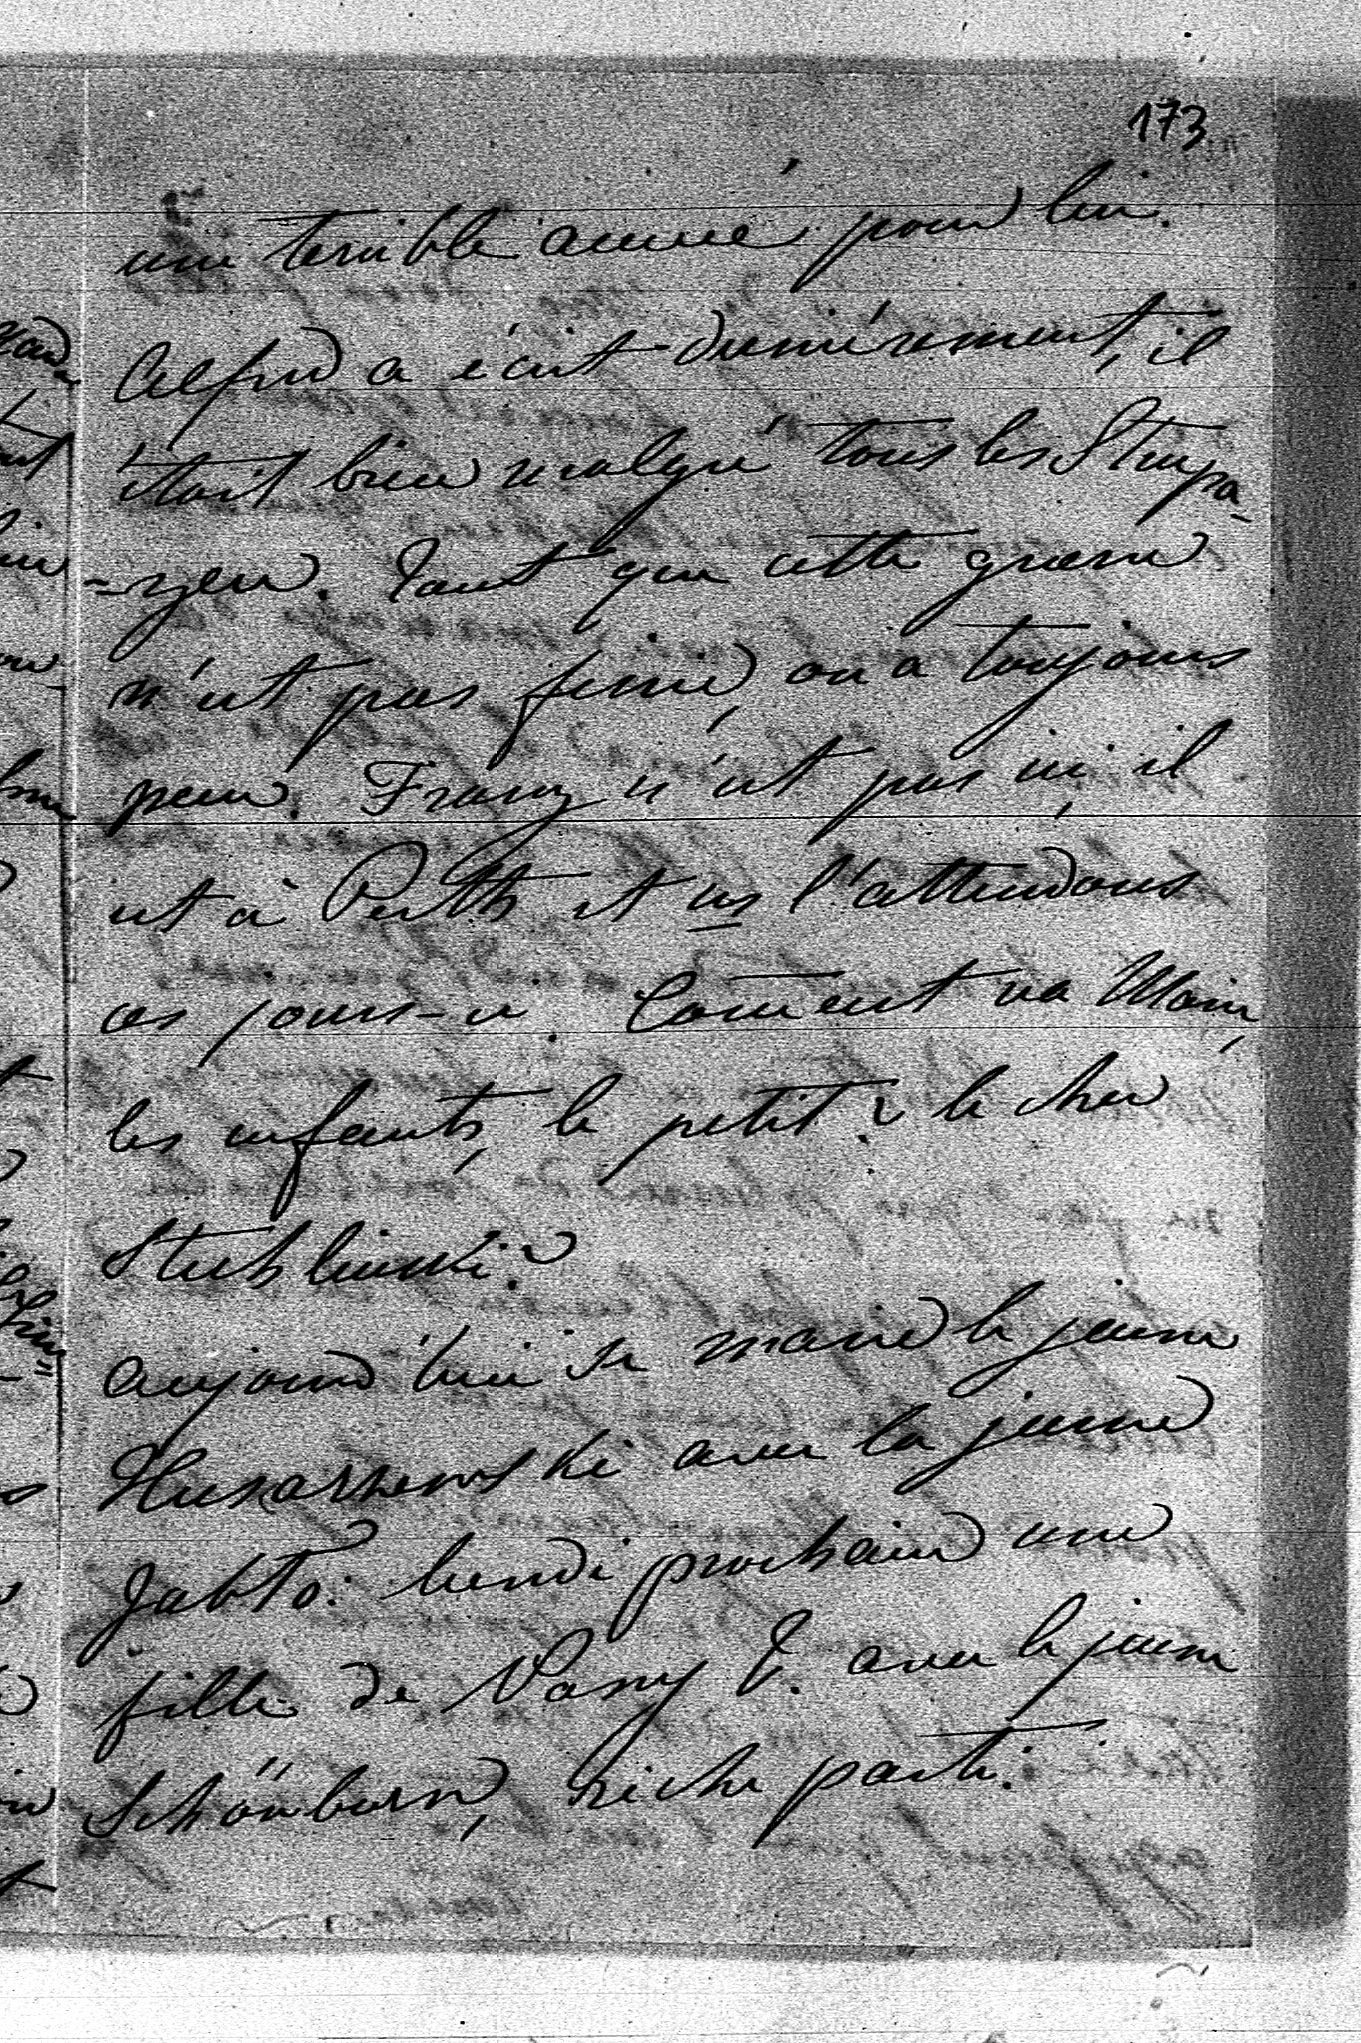 173
une terrible année pour lui.
Alfred a écrit dernièrement, il
était bien malgré tous les Strapa-
-zen. Tant que cette guerre
n'est pas finie, on a toujours
peur. Franz n'est pas ici, il
est à Pesth et ns l'attendons
ces jours-ci. Coment va Marie,
les enfants, le petit? le cher
Stuhlinski?
Aujourd'hui se marie le jeune
Husarzewski avec la jeune
Jabło: lundi prochain une
fille de Vany J. avec le jeune
Schönborn, riche parti.